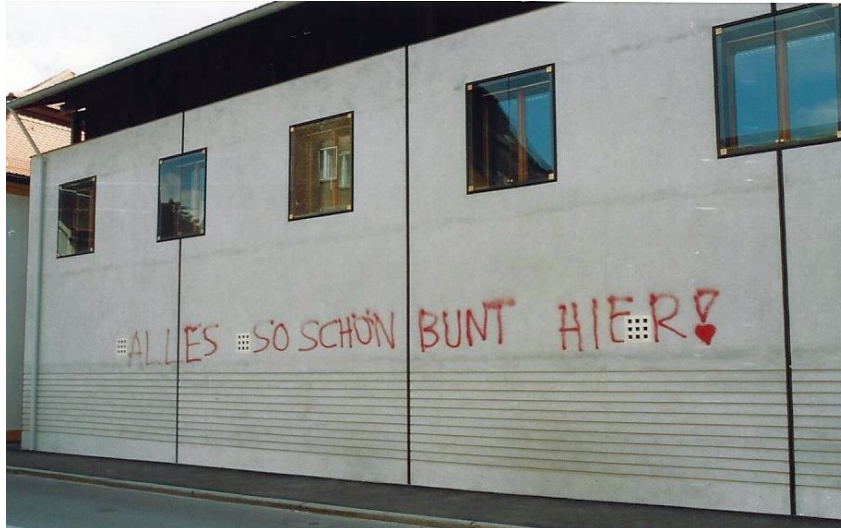 ALLES SO SCHÖN BUNT HIER!